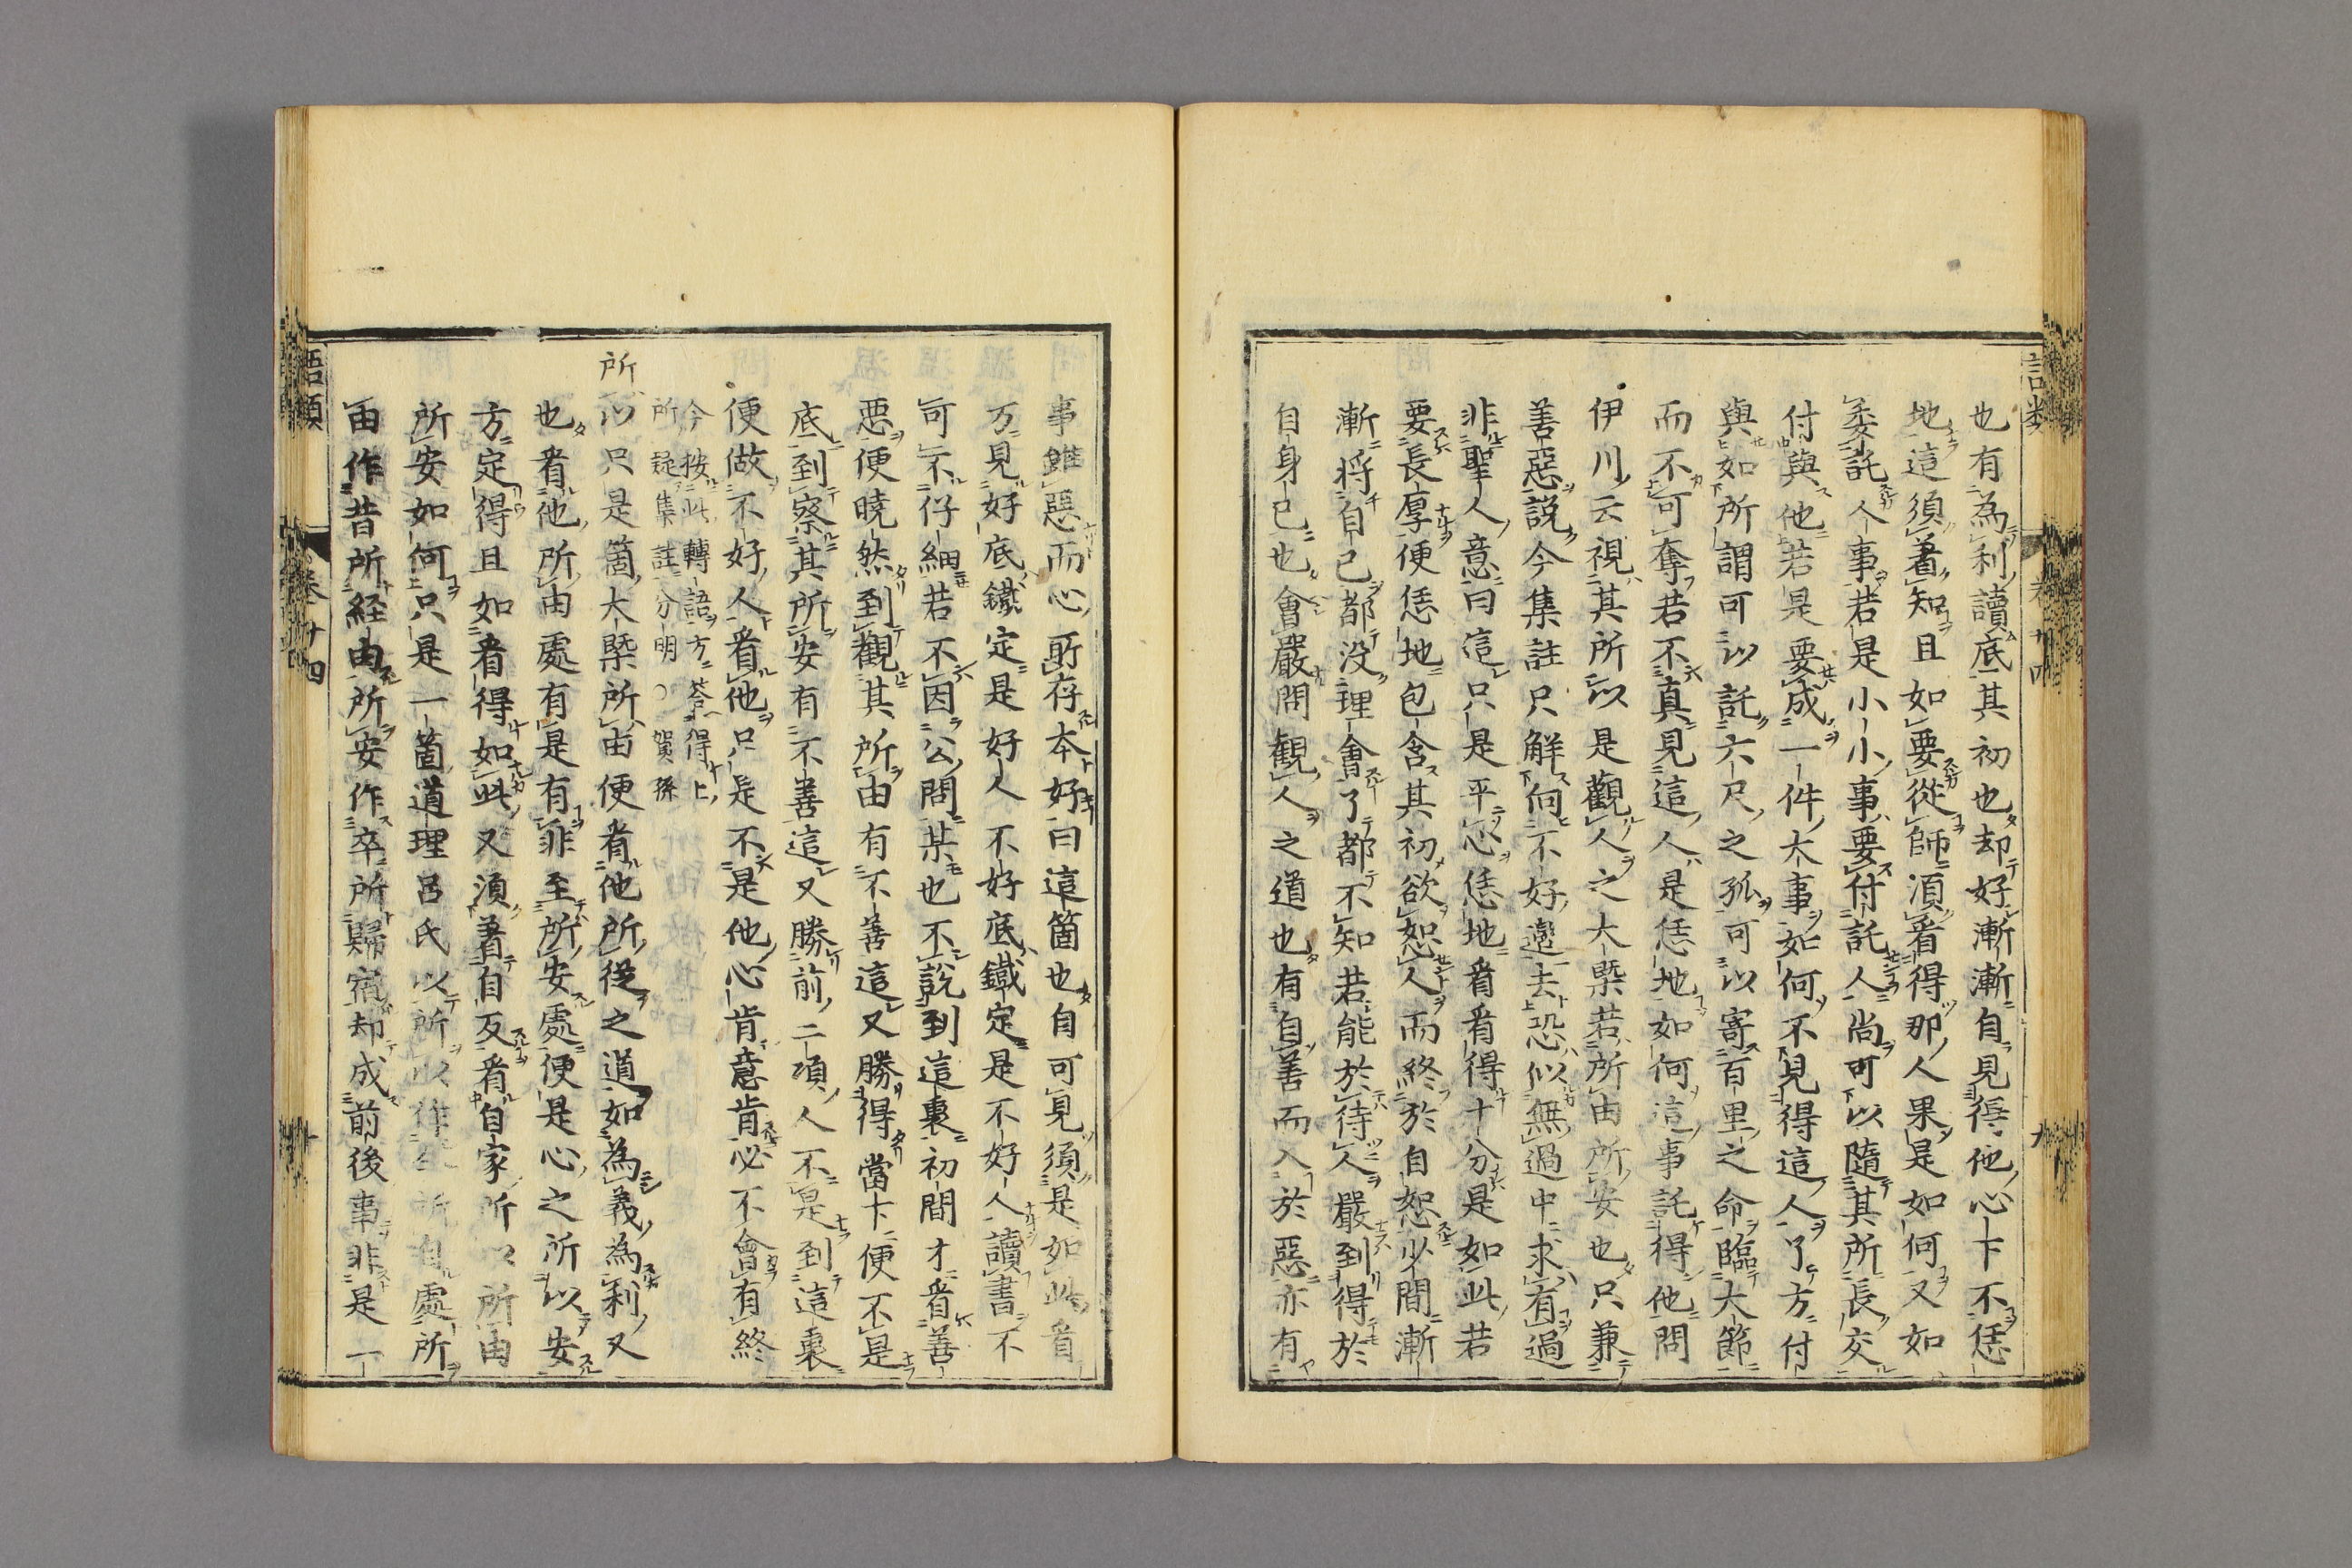 也有為利讀底其初也却好漸漸自見得他心下不恁
地這須著知且如要從師須看得那人果是如何又如
委託人事若是小小事要付託人尚可以隨其所長交
付與他若是要成一件大事如何不見得這人了方付
與如所謂可以託六尺之孤可以寄百里之命臨大節
而不可奪若不真見這人是恁地如何這事託得他問
伊川云視其所以是觀人之大槩若所由所安也只兼
善惡説今集註只解向不好邊去恐似無過中求有過
非聖人意曰這只是平心恁地看看得十分是如此若
要長厚便恁地包含其初欲恕人而終於自恕少間漸
漸將自己都没理會了都不知若能於待人嚴到得於
自身已也會嚴問觀人之道也有自善而入於惡亦有
事雖惡而心所存本好曰這箇也自可見須是如此看
方見好底鐵定是好人不好底鐵定是不好人讀書不
可不仔細若不因公問某也不説到這裏初間才看善
惡便曉然到觀其所由有不善這又勝得當下便不是
底到察其所安有不善這又勝前二項人不是到這裏
便做不好人看他只是不是他心肯意肯必不會有終
今按此轉語方荅得上
所疑集註分明 賀孫
所以只是箇大槩所由便看他所從之道如為義為利又
也看他所由處有是有非至所安處便是心之所以安
方定得且如看得如此又須著自反看自家所以所由
所安如何只是一箇道理呂氏以所以作今所自處所
由作昔所經由所安作卒所歸宿却成前後事非是一
語類 卷十四
卷十四 九